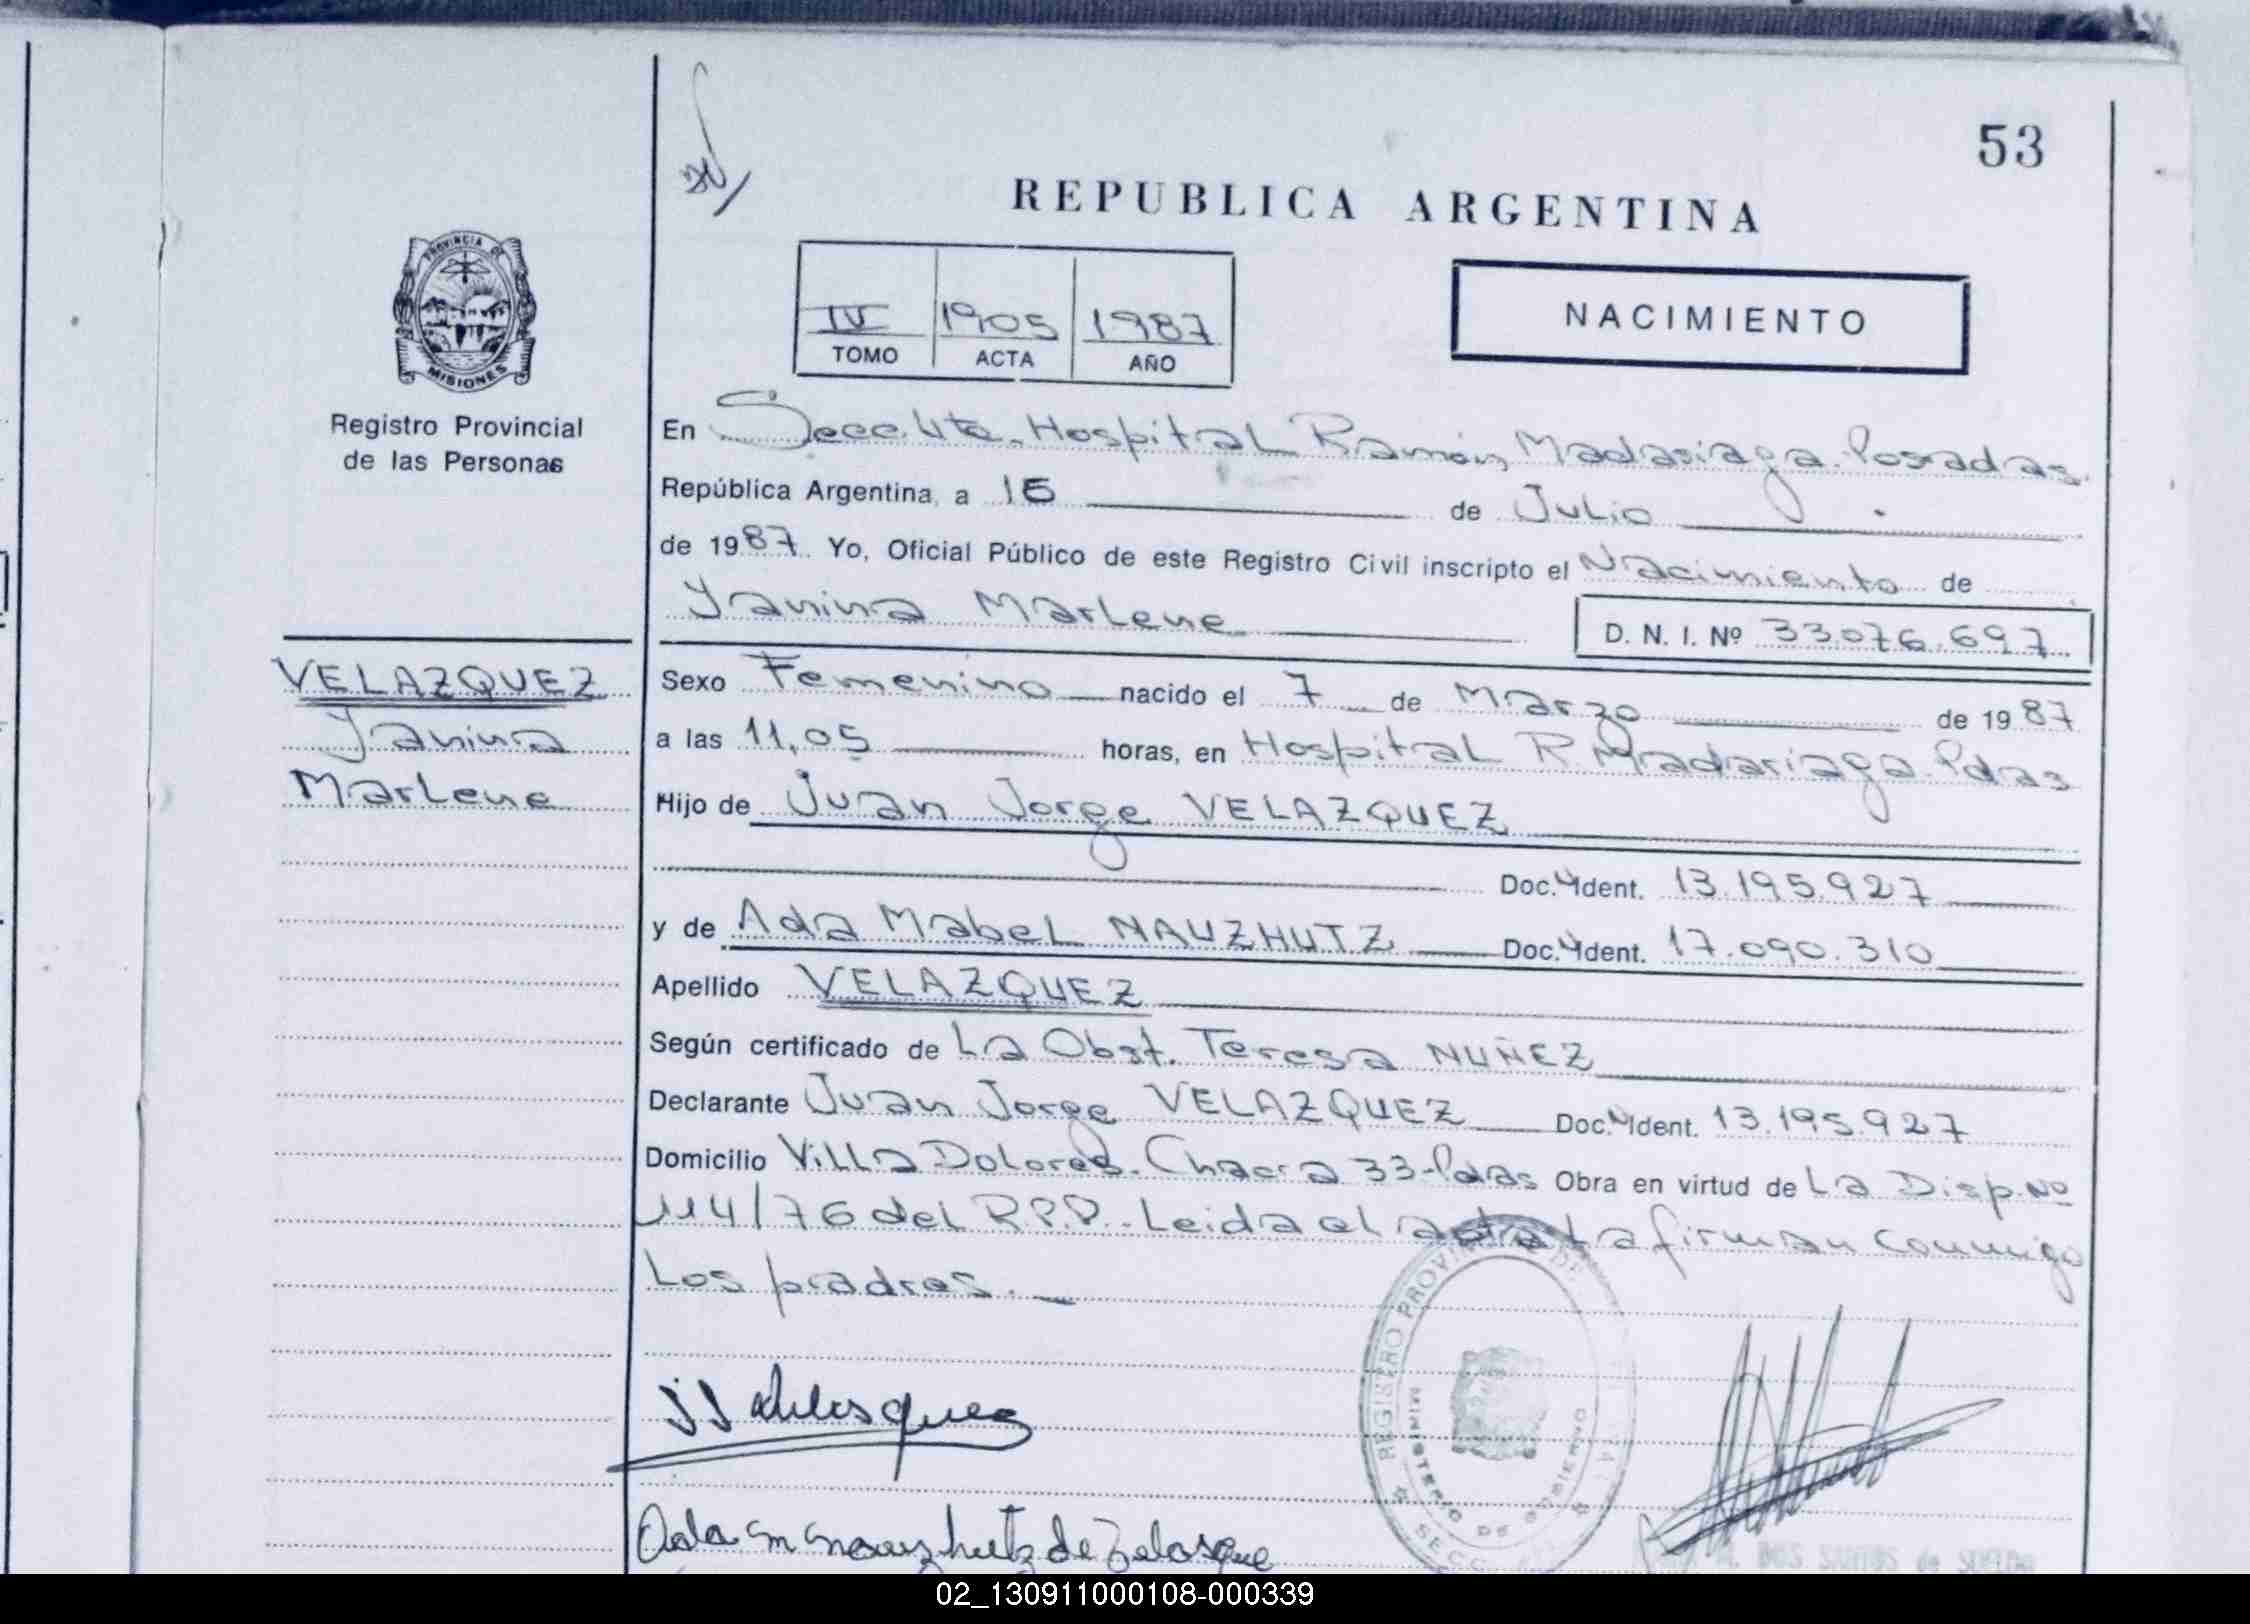 53
REPUBLICA ARGENTINA
PROVINCIA DE
MISIONES
Registro Provincial
de las Personas
IV 1905 1987
TOMO ACTA AÑO
NACIMIENTO
En Secc. 4ta. Hospital Ramón Madariaga. Posadas.
República Argentina, a 15 de Julio
de 1987. Yo, Oficial Público de este Registro Civil inscripto el Nacimiento de
Yanina Marlene D. N. I. Nº 33.076.697
VELAZQUEZ
Yanina
Marlene
Sexo Femenino nacido el 7 de Marzo de 1987
a las 11,05 horas, en Hospital R. Madariaga. Pdas
Hijo de Juan Jorge VELAZQUEZ
Doc. Ident. 13.195.927
y de Ada Mabel NAUZHUTZ Doc. Ident. 17.090.310
Apellido VELAZQUEZ
Según certificado de La Obst. Teresa NUÑEZ
Declarante Juan Jorge VELAZQUEZ Doc. Ident. 13.195.927
Domicilio Villa Dolores. Chacra 33-Pdas Obra en virtud de La Disp. Nº
114/76 del R.P.P. Leida el acta La firman conmigo
Los padres.
REGISTRO PROVINCIAL DE
MINISTERIO DE GOBIERNO
SECC
Ada M Nauzhutz de Velasque
DOS SANTOS de
02_130911000108-000339